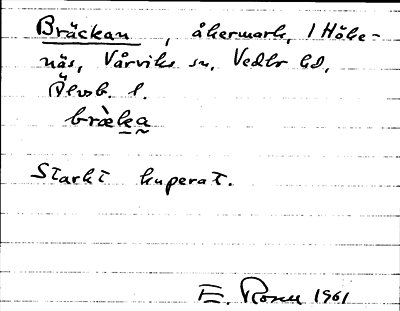 Bräckan, åkermark, 1 Höke-
näs, Vårviks sn, Vedbo hd,
Älvsb. l.
bræ̀ka
Starkt kuperat.
E. Rosen 1961